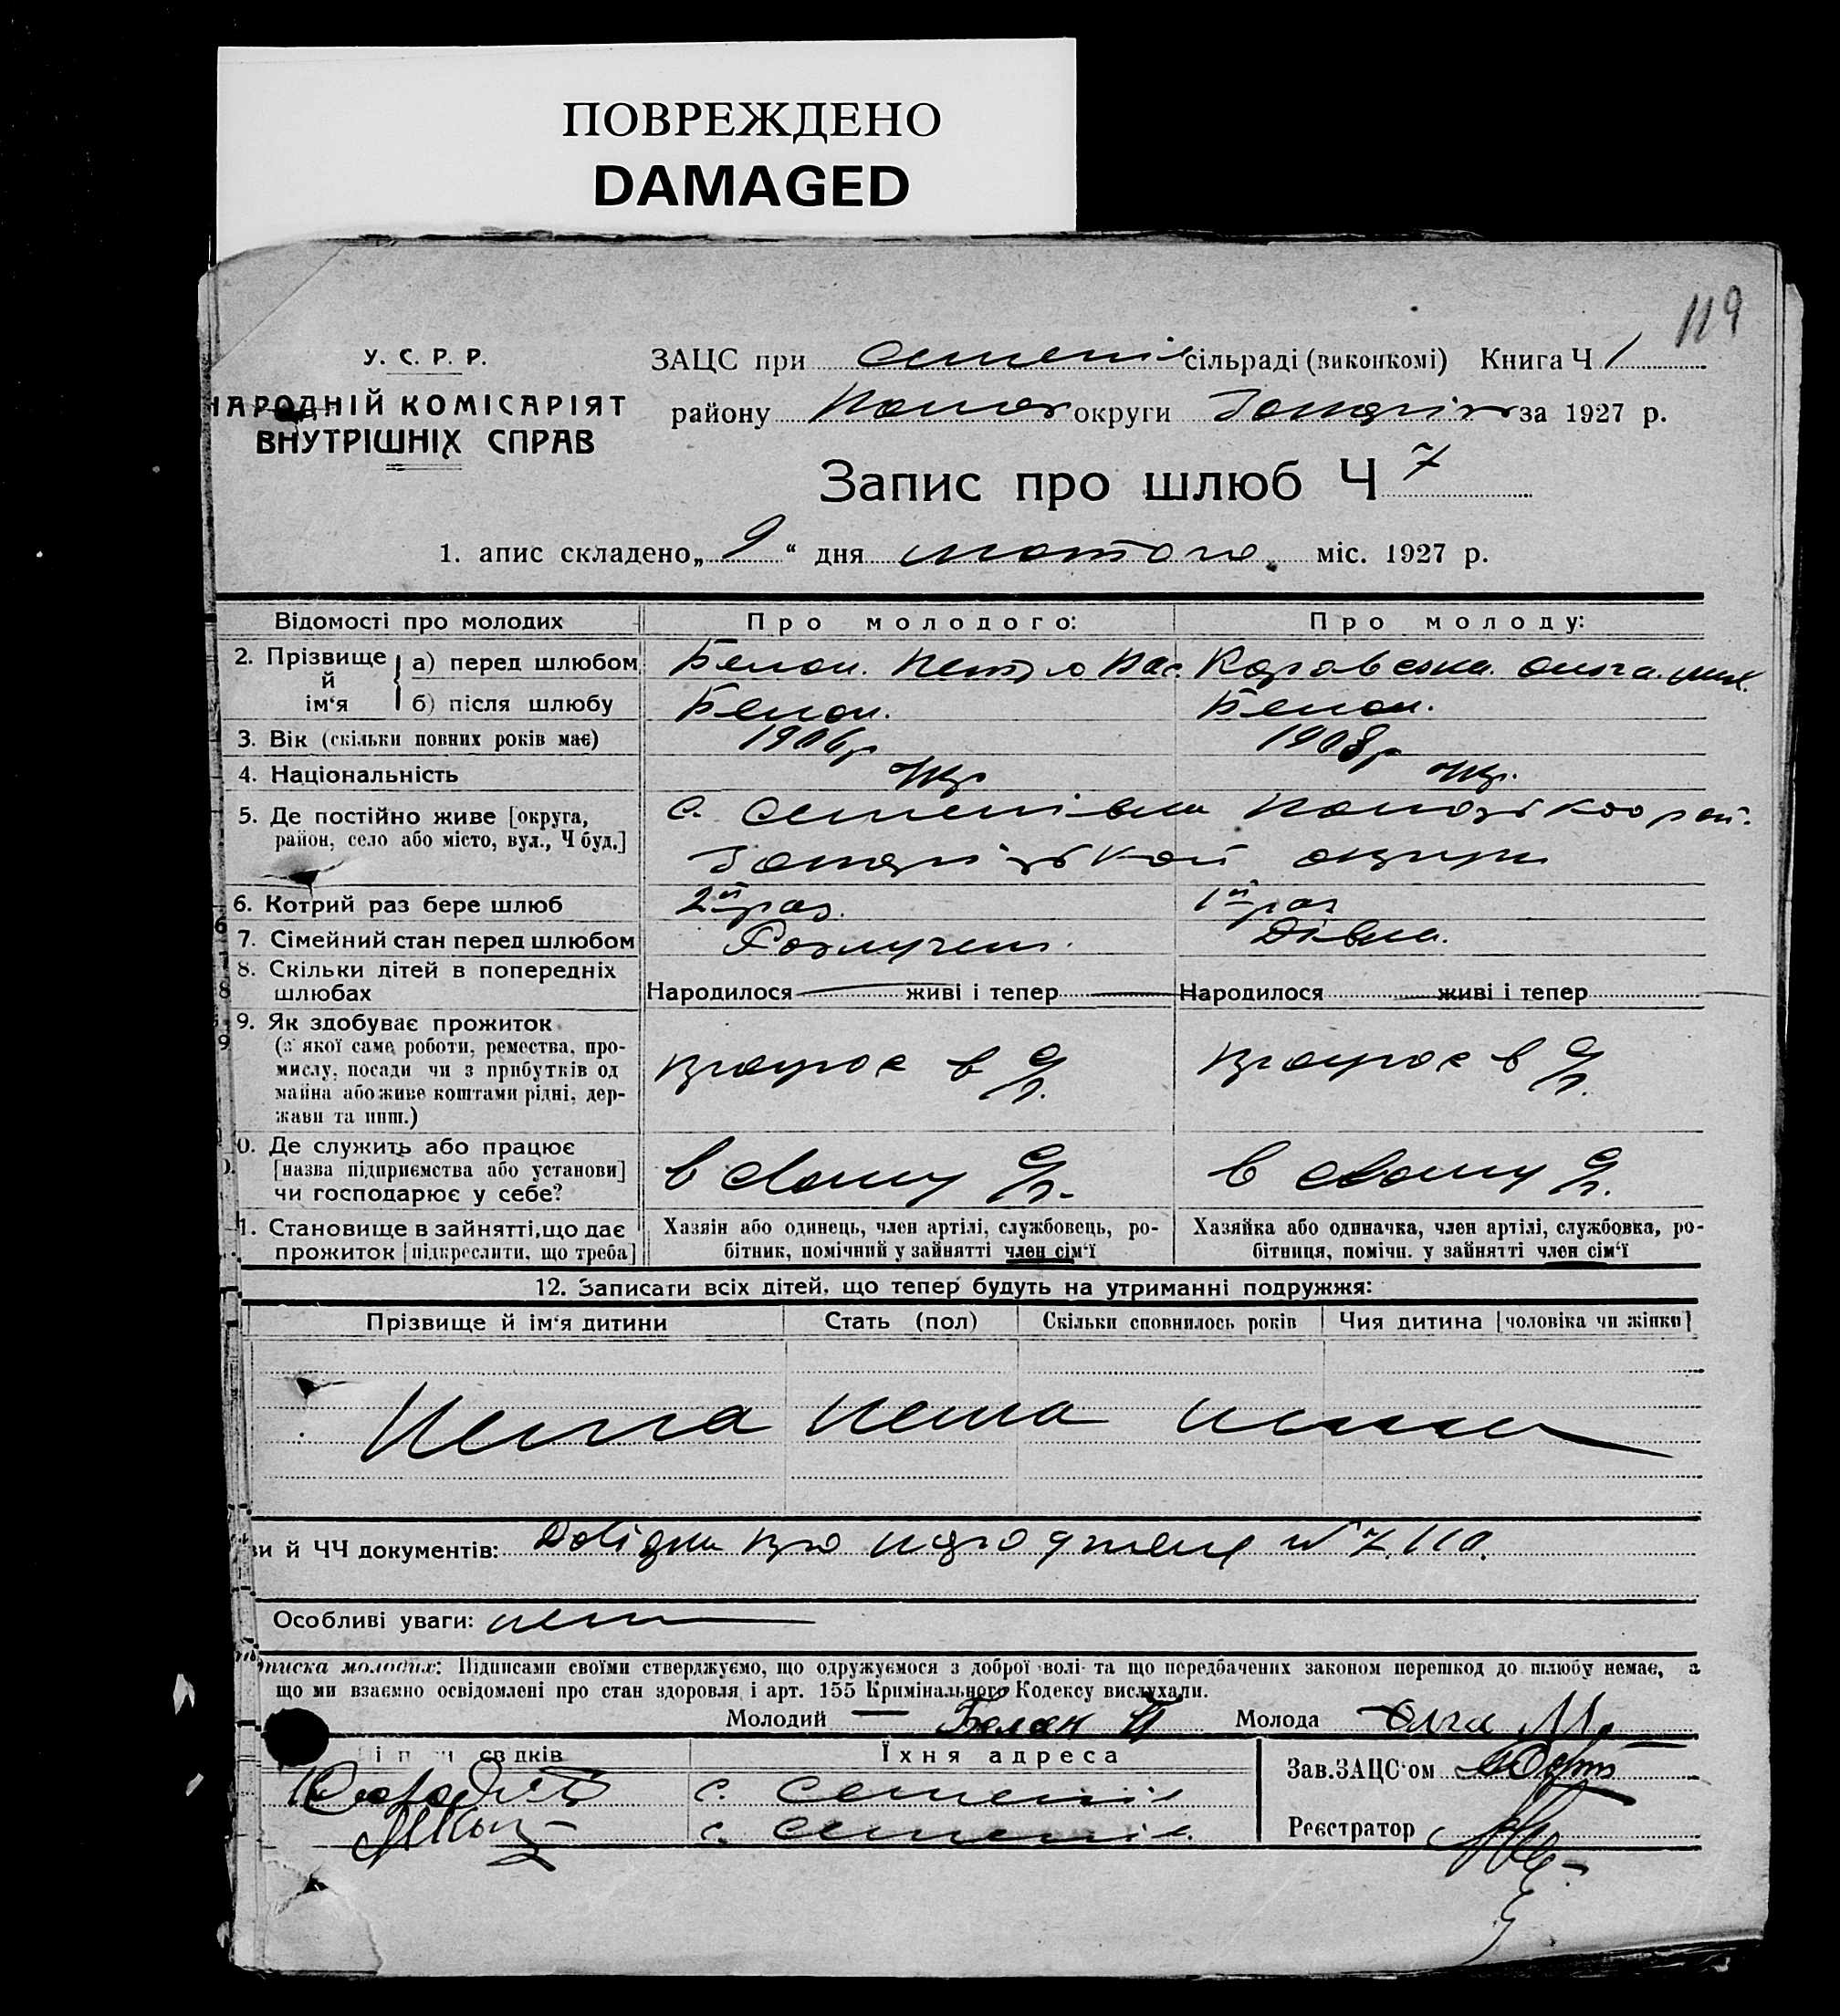 ПОВРЕЖДЕНО
DAMAGED
119
У. С. Р. Р.
НАРОДНІЙ КОМІСАРІЯТ
ВНУТРІШНІХ СПРАВ
ЗАЦС при сільраді (виконкомі) Книга Ч 1
району округи за 1927 р.
Запис про шлюб Ч 7
1. апис складено „ 9 “ дня лютого міс. 1927 р.
Відомості про молодих
Про молодого:
Про молоду:
2. Прізвище й ім‘я
а) перед шлюбом
Белан. Петро Вас.
Ольга. Мих.
б) після шлюбу
Белан.
Белан.
3. Вік (скільки повних років має)
1906 р
1908 р
4. Національність
Укр
Укр.
5. Де постійно живе [округа,
район, село або місто, вул., Ч буд.]
с. Семенівка рай.
округи
6. Котрий раз бере шлюб
2й раз.
1й раз
7. Сімейний стан перед шлюбом
Розлучен.
Дівка.
8. Скільки дітей в попередніх
шлюбах
Народилося живі і тепер
Народилося живі і тепер
9. Як здобуває прожиток
(з якої саме роботи, ремества, про-
мислу, посади чи з прибутків од
майна або живе коштами рідні, дер-
жави та инш.)
працює в
працює в
0. Де служить або працює
[назва підприємства або установи]
чи господарює у себе?
в свому
в свому
1. Становище в зайнятті, що дає
прожиток [підкреслити, що треба]
Хазяін або одинець, член артілі, службовець, ро-
бітник, помічний у зайнятті член сім‘ї
Хазяйка або одиначка, член артілі, службовка, ро-
бітниця, помічн. у зайнятті член сім‘ї
12. Записати всіх дітей, що тепер будуть на утриманні подружжя:
Прізвище й ім‘я дитини
Стать (пол)
Скільки сповнилось років
Чия дитина [чоловіка чи жінки]
Нема нема нема
ви й ЧЧ документів: Довідки про народження № 7. 110.
Особливі уваги: нема
писка молодих: Підписами своїми стверджуємо, що одружуємося з доброї волі та що передбачених законом перешкод до шлюбу немає, а
що ми взаємно освідомлені про стан здоровля і арт. 155 Кримінального Кодексу вислухали.
Молодий Белан П
Молода Ольга М
свідків
Їхня адреса
с. Семенів
с. Семенів.
Зав. ЗАЦС‘ом
Реєстратор